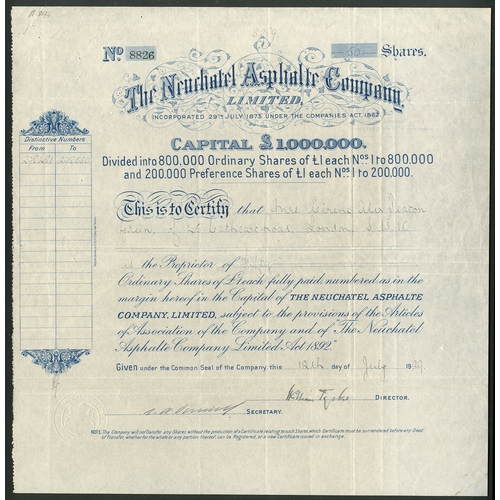 Nº 8826 50 Shares.
The Neuchatel Asphalte Company,
LIMITED,
INCORPORATED 29TH JULY 1873 UNDER THE COMPANIES ACT, 1862.
CAPITAL £1,000,000.
Divided into 800,000 Ordinary Shares of £1 each Nos 1 to 800,000
and 200,000 Preference Shares of £1 each Nos 1 to 200,000.
Distinctive Numbers
From To
This is to Certify that
London S.W.10
as the Proprietor of Fifty
Ordinary Shares of £1 each fully paid, numbered as in the
margin hereof in the Capital of THE NEUCHATEL ASPHALTE
COMPANY, LIMITED, subject to the provisions of the Articles
of Association of the Company and of "The Neuchatel
Asphalte Company Limited Act 1892."
Given under the Common Seal of the Company, this 12th day of July 1937
DIRECTOR.
SECRETARY.
NOTE: The Company will not Transfer any Shares without the production of a Certificate relating to such Shares, which Certificate must be surrendered before any Deed
of Transfer, whether for the whole or any portion thereof, can be Registered, or a new Certificate issued in exchange.